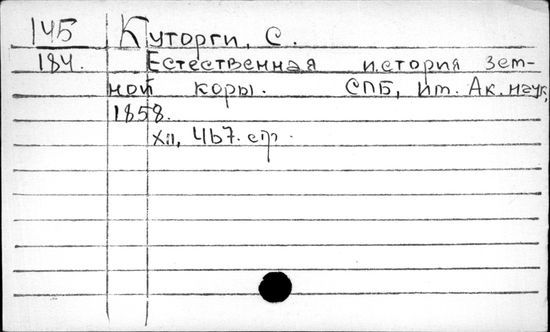 145 Куторги, С.
184. Естественная история зем-
ной коры. СПБ, им. Ак. наук,
1858.
XII, 467. стр.